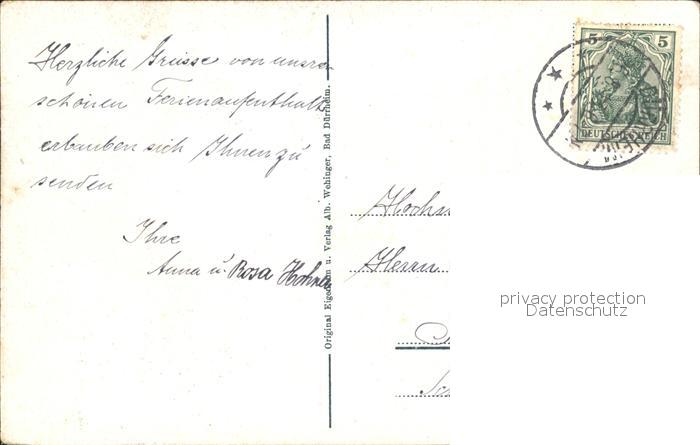 Herzliche Grüsse von unsrem
schönen Ferienaufenthalt
erlauben sich Ihnen zu
senden
Ihre
Anna u. Rosa
Original Eigentum u. Verlag Alb. Wehinger, Bad Dürrheim.
5 5
DEUTSCHES REICH
Herrn
privacy protection
Datenschutz